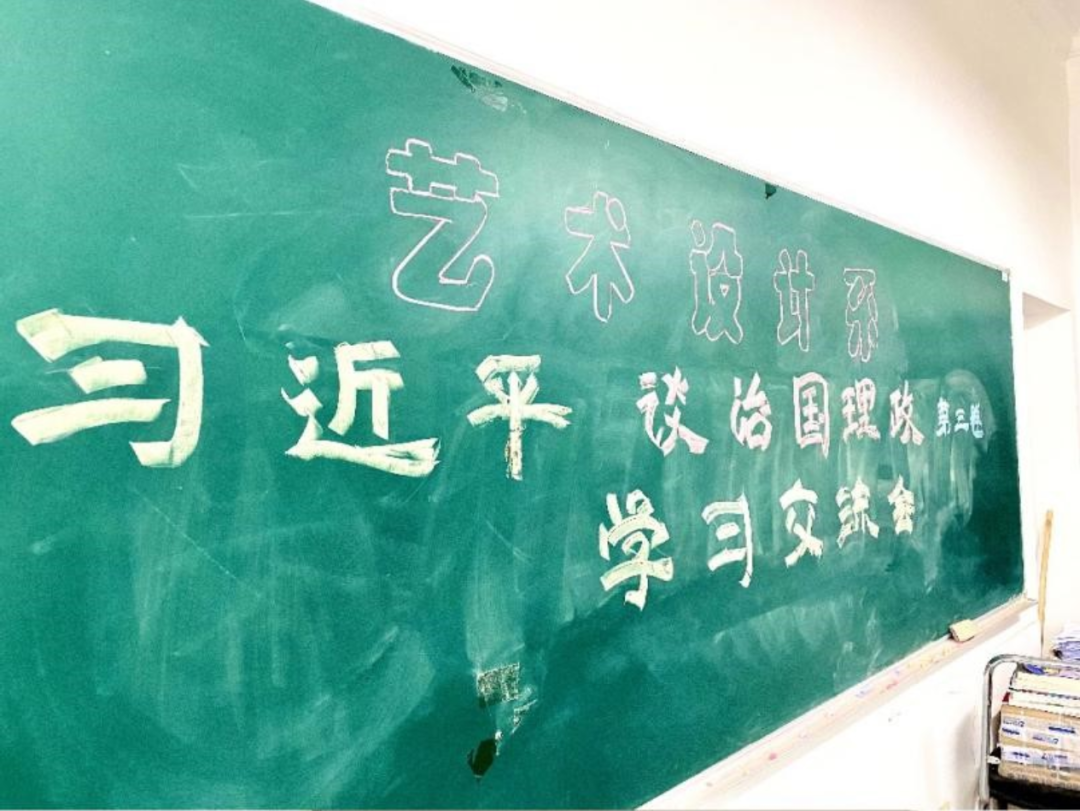 艺术设计系
习近平谈治国理政第三卷
学习交流会